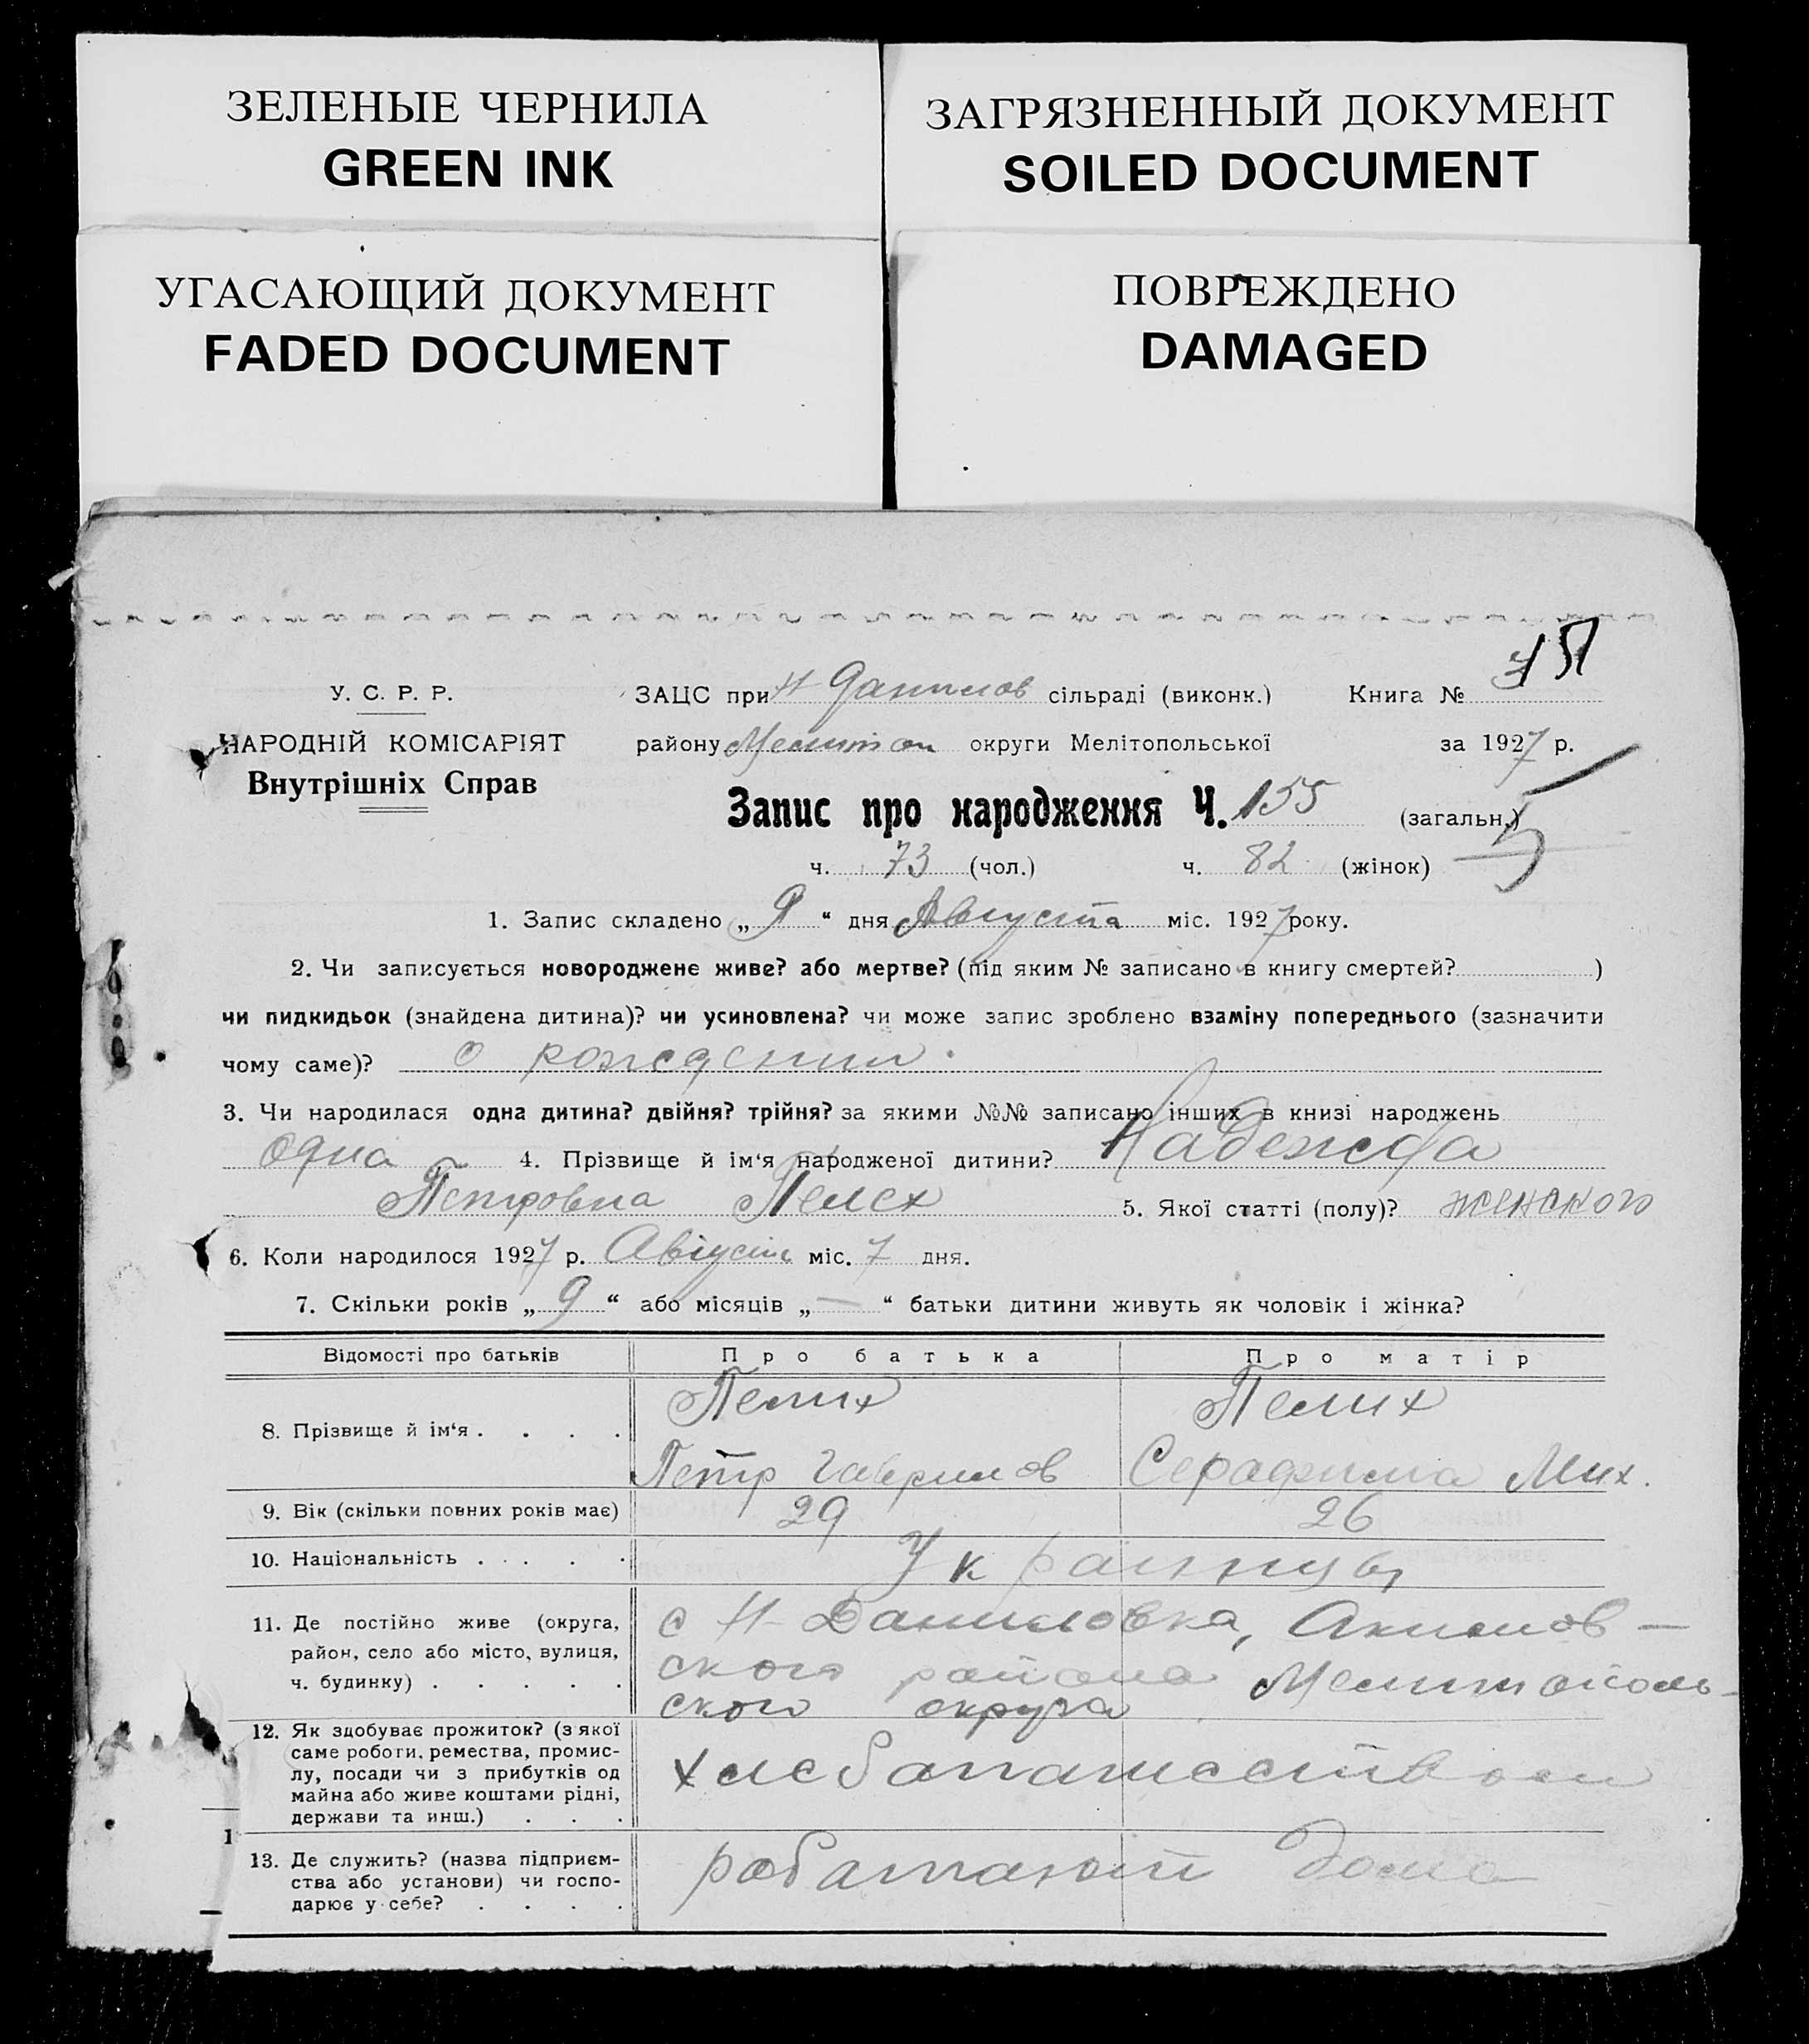 ЗЕЛЕНЫЕ ЧЕРНИЛА
GREEN INK
ЗАГРЯЗНЕННЫЙ ДОКУМЕНТ
SOILED DOCUMENT
УГАСАЮЩИЙ ДОКУМЕНТ
FADED DOCUMENT
ПОВРЕЖДЕНО
DAMAGED
У. С. Р. Р.
НАРОДНІЙ КОМІСАРІЯТ
Внутрішніх Справ
ЗАЦС при Н Данилов сільраді (виконк.) Книга №
району Мелитоп округи Мелітопольської за 1927 р.
Запис про народження Ч. 155 (загальн.)
ч. 73 (чол.) ч. 82 (жінок)
1. Запис складено „9“ дня Августа міс. 1927 року.
2. Чи записується новороджене живе? або мертве? (під яким № записано в книгу смертей? )
чи пидкидьок (знайдена дитина)? чи усиновлена? чи може запис зроблено взаміну попереднього (зазначити
чому саме)? о рождении
3. Чи народилася одна дитина? двійня? трійня? за якими №№ записано інших в книзі народжень
одна 4. Прізвище й ім‘я народженої дитини? Надежда
Петровна Пелех 5. Якої статті (полу)? женского
6. Коли народилося 1927 р. Август міс. 7 дня.
7. Скільки років „9“ або місяців „—“ батьки дитини живуть як чоловік і жінка?
Відомості про батьків Про батька Про матір
8. Прізвище й ім‘я . . . . Пелих Пелих
Петр Гаврилов Серафима Мих.
9. Вік (скільки повних років має) 29 26
10. Національність . . . . Украинцы
11. Де постійно живе (округа,
район, село або місто, вулиця,
ч. будинку) . . . . .
с Н-Даниловка, Акимов-
ского района Мелитополь-
ского округа
12. Як здобуває прожиток? (з якої
саме роботи, ремества, промис-
лу, посади чи з прибутків од
майна або живе коштами рідні,
держави та инш.) . . .
хлебопашеством
13. Де служить? (назва підприєм-
ства або установи) чи госпо-
дарює у себе? . . . .
работают дома